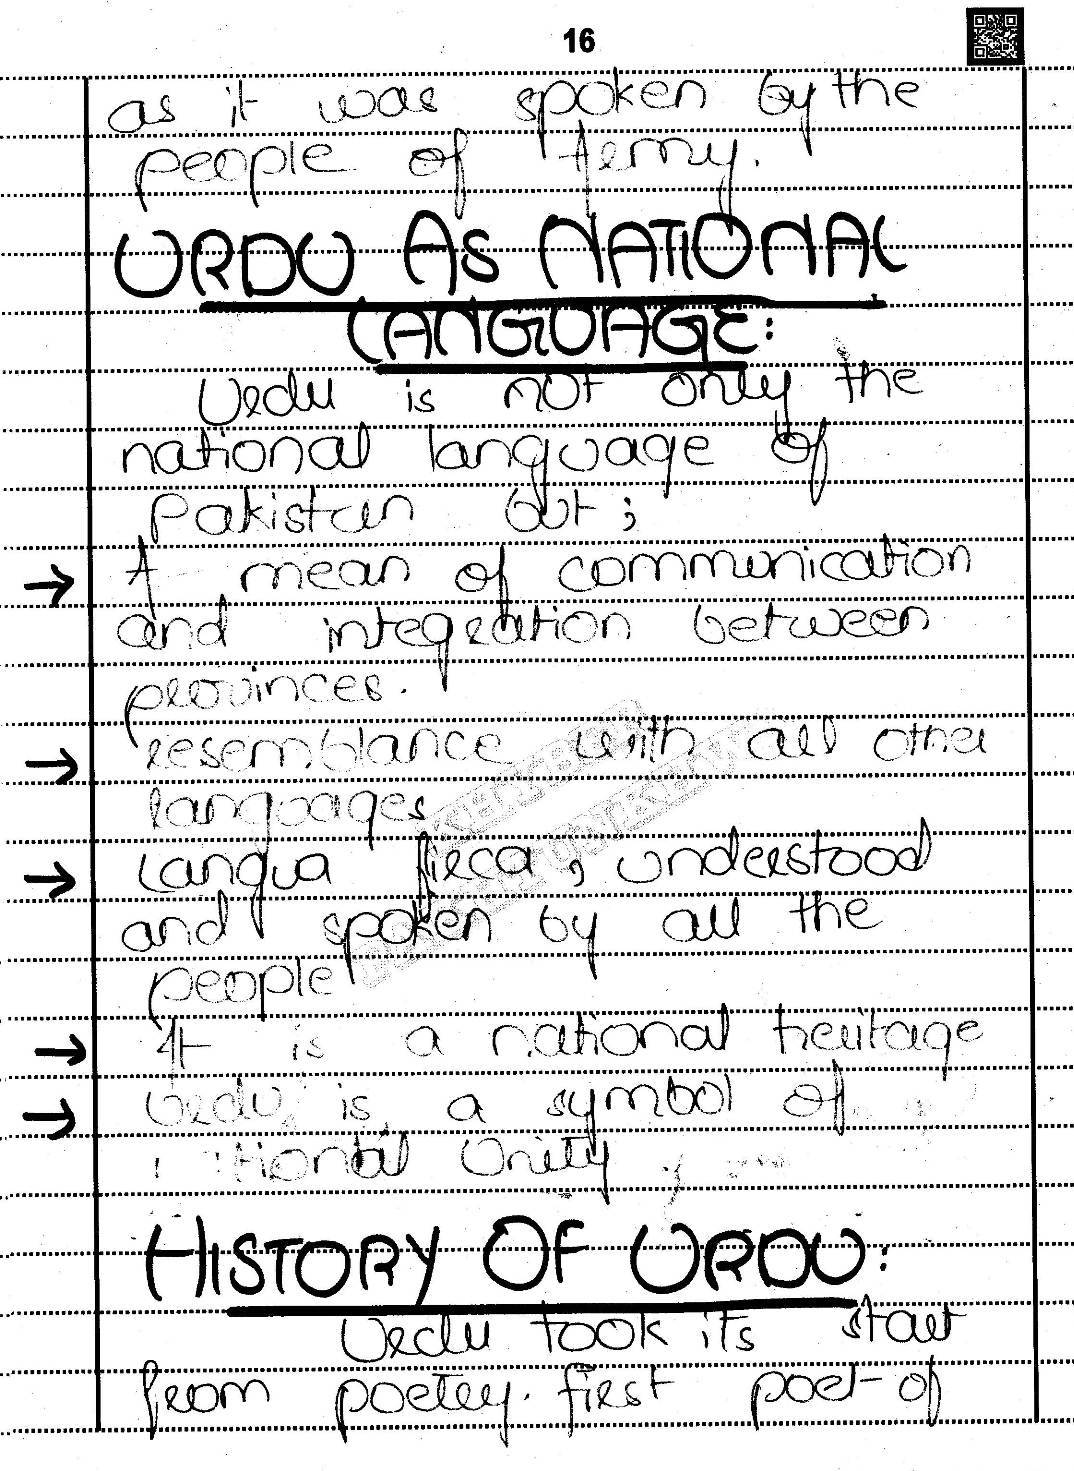 16
as it was spoken by the
people of Army.
URDU AS NATIONAL
LANGUAGE:
Urdu is not only the
national language of
Pakistan but;
→ A mean of communication
and integration between
provinces.
→ resemblance with all other
languages
→ Langua firca, understood
and spoken by all the
people
→ It is a national heritage
→ Urdu is a symbol of
national Unity
HISTORY OF URDU:
Urdu took its start
from poetry. first poet of